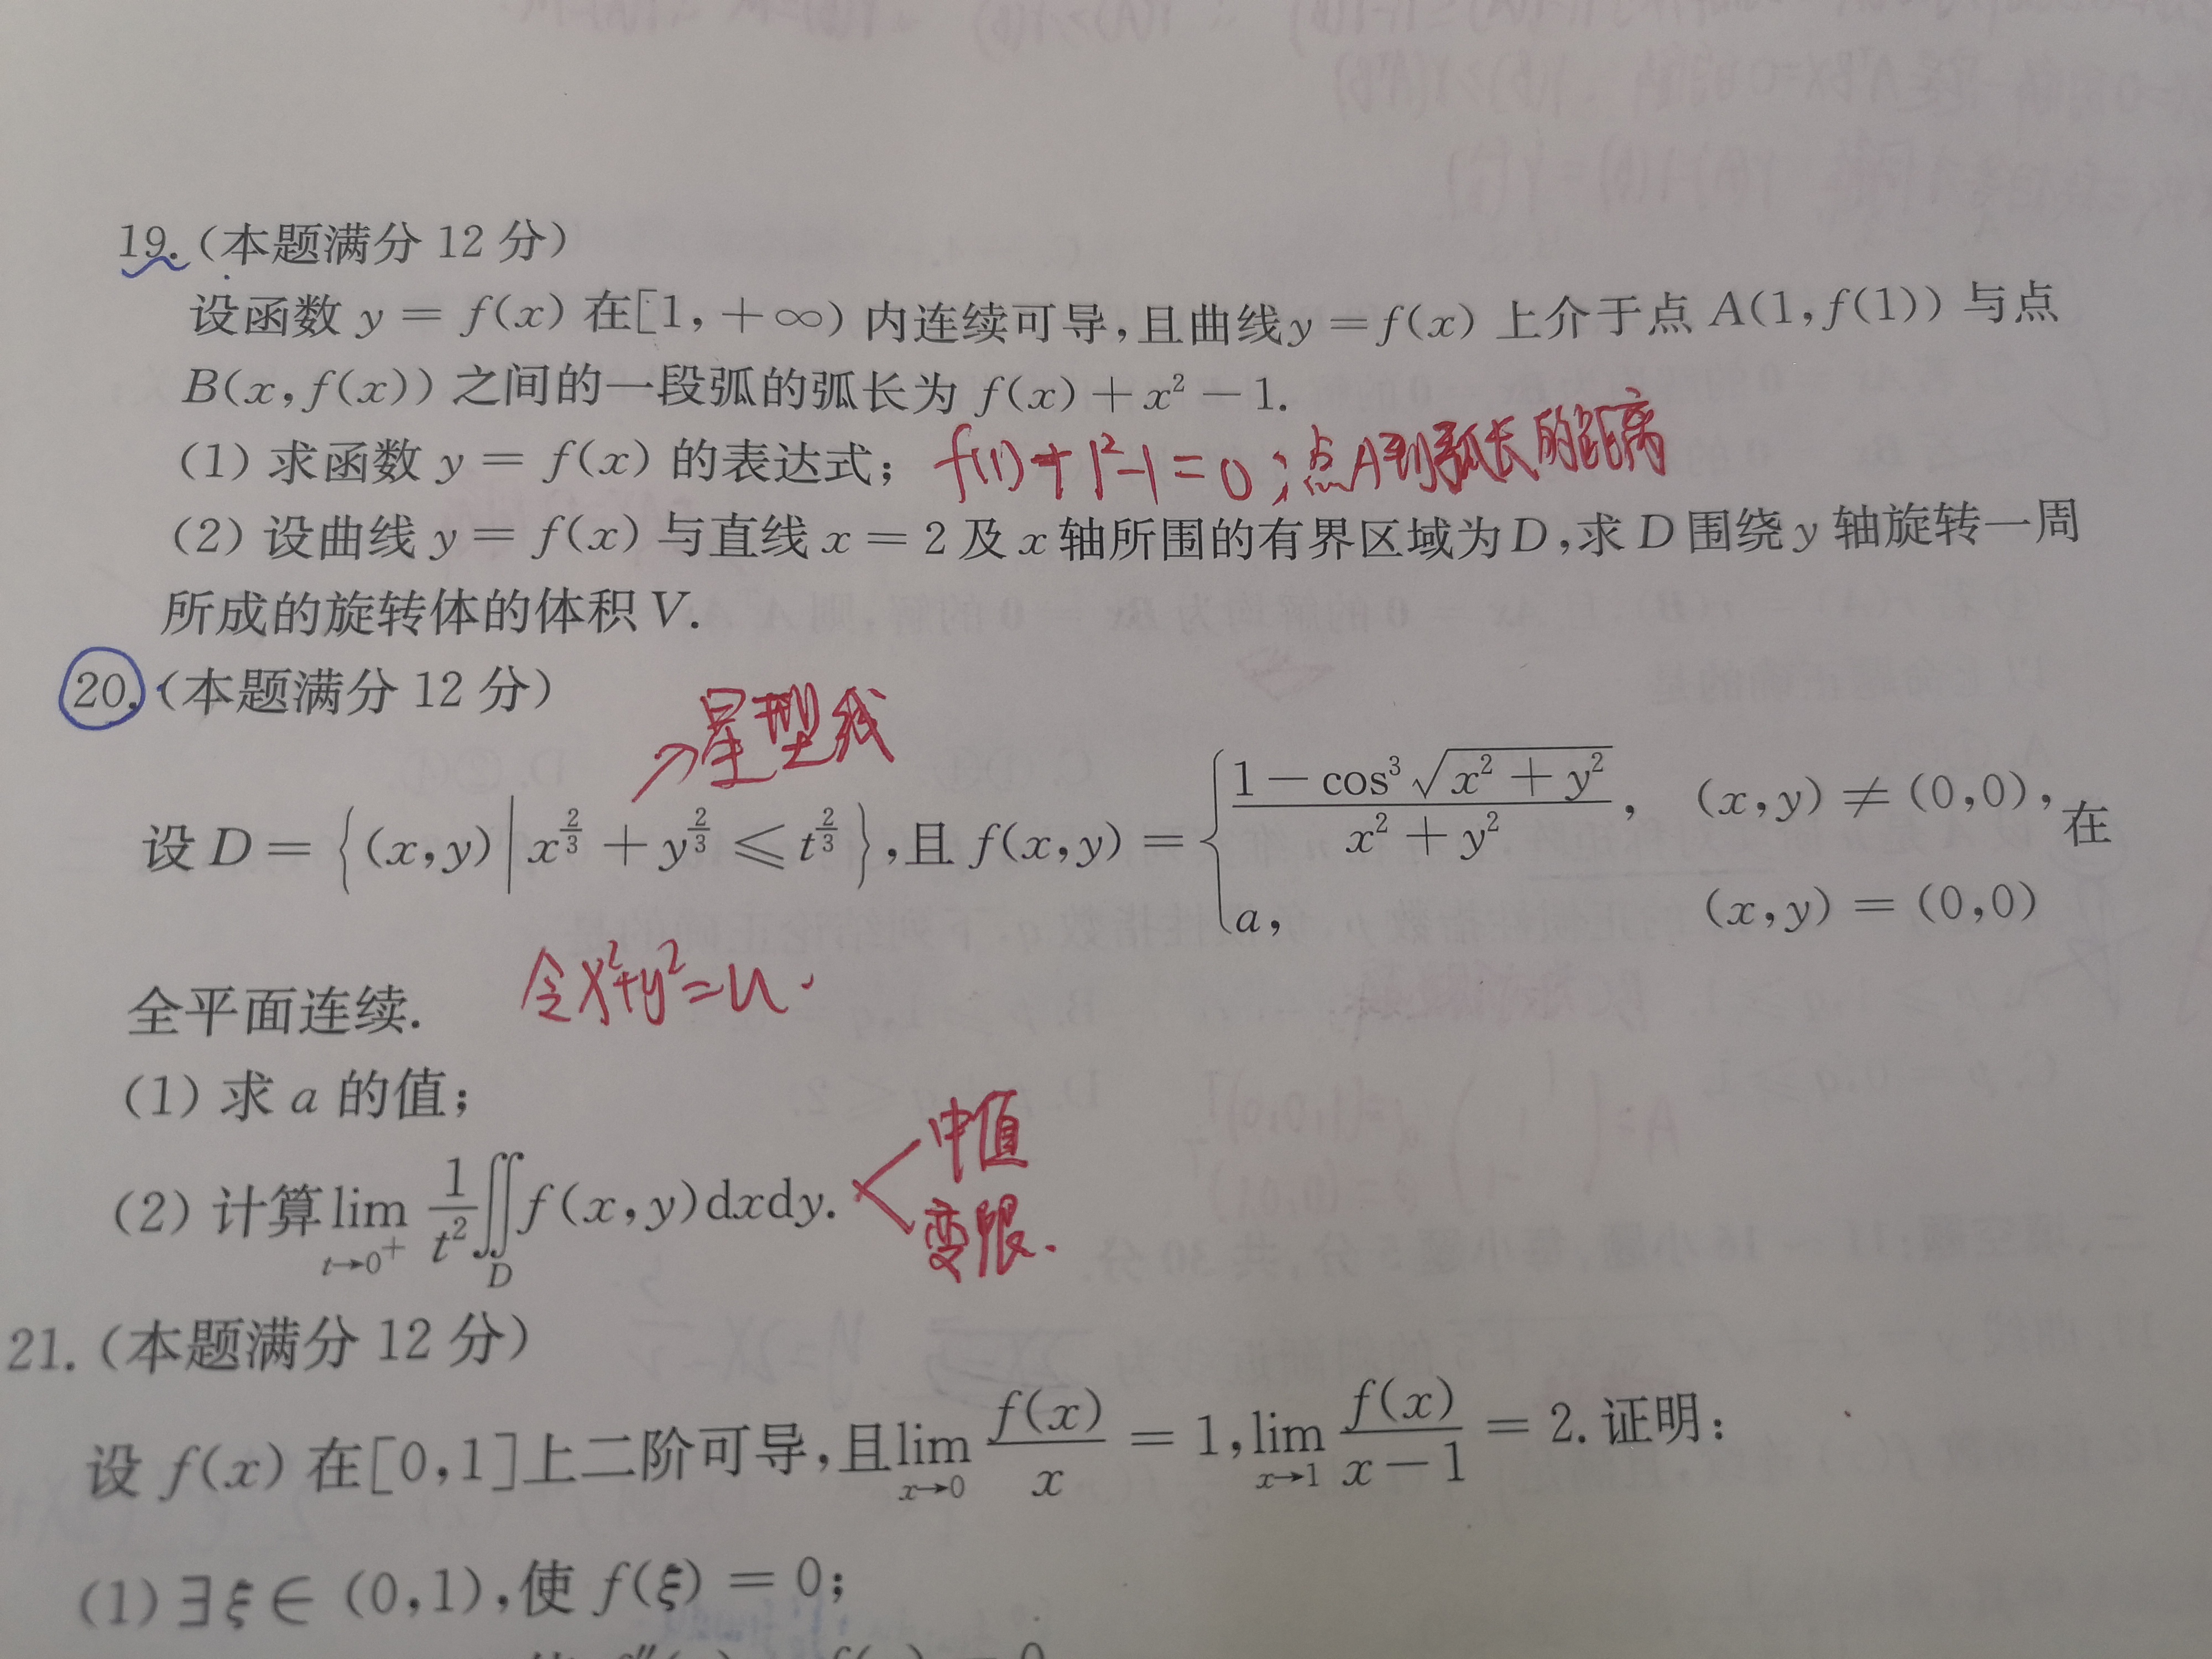 19.(本题满分 12 分)
设函数 y = f(x) 在[1, +∞) 内连续可导,且曲线y = f(x) 上介于点 A(1, f(1)) 与点
B(x, f(x)) 之间的一段弧的弧长为 f(x) + x² − 1.
(1) 求函数 y = f(x) 的表达式; f(1)+1²-1=0;点A到弧长的距离
(2) 设曲线 y = f(x) 与直线 x = 2 及 x 轴所围的有界区域为 D,求 D 围绕 y 轴旋转一周
所成的旋转体的体积 V.
20.(本题满分 12 分)
星型线
设 D = {(x,y) | x^(2/3) + y^(2/3) ⩽ t^(2/3)},且 f(x,y) = { (1 − cos³√(x² + y²))/(x² + y²), (x,y) ≠ (0,0), 在
a, (x,y) = (0,0)
全平面连续. 令x²+y²=u.
(1) 求 a 的值;
中值
(2) 计算 lim t→0⁺ 1/t² ∬_D f(x,y)dxdy.
变限.
21.(本题满分 12 分)
设 f(x) 在[0,1]上二阶可导,且 lim x→0 f(x)/x = 1, lim x→1 f(x)/(x−1) = 2. 证明:
(1) ∃ξ∈ (0,1),使 f(ξ) = 0;